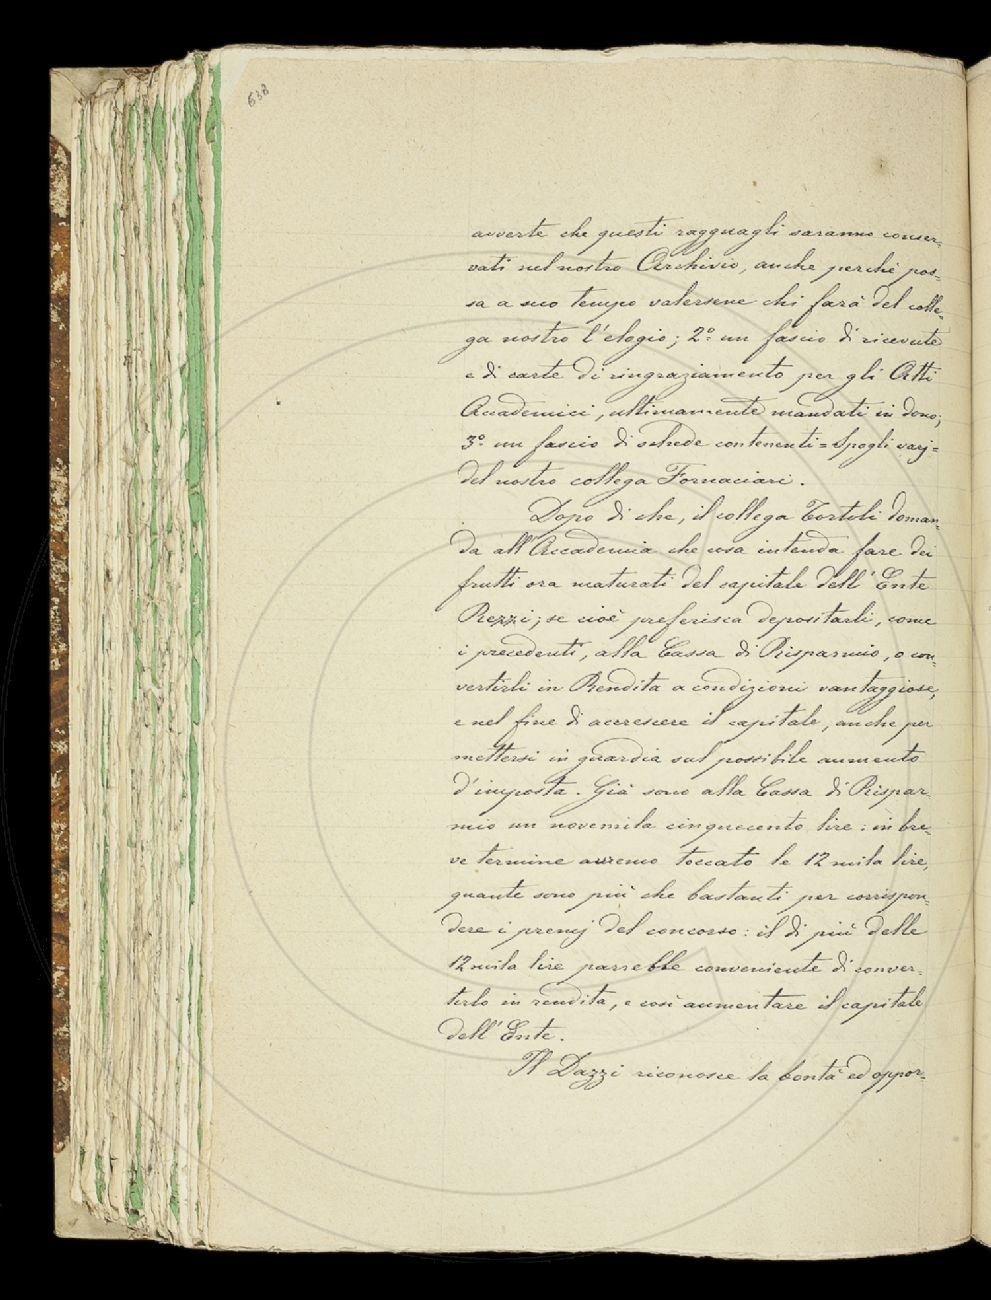 638
avverte che questi ragguagli saranno conser-
vati nel nostro Archivio, anche perchè pos-
sa a suo tempo valersene chi farà del colle-
ga nostro l'elogio; 2° un fascio di ricevute
e di carte di ringraziamento per gli Atti
Accademici, ultimamente mandati in dono;
3° un fascio di schede contenenti = Spogli varj =
del nostro collega Fornaciari.
Dopo di che, il collega Tortoli doman-
da all'Accademia che cosa intenda fare dei
frutti ora maturati del capitale dell'Ente
Rezzi; se cioè preferisca depositarli, come
i precedenti, alla Cassa di Risparmio, o con-
vertirli in Rendita a condizioni vantaggiose,
e nel fine di accrescere il capitale, anche per
mettersi in guardia sul possibile aumento
d'imposta. Già sono alla Cassa di Rispar-
mio un novemila cinquecento lire: in bre-
ve termine avremo toccato le 12 mila lire,
quante sono più che bastanti per corrispon-
dere i premj del concorso: il di più delle
12 mila lire parrebbe conveniente di conver-
tirlo in rendita, e così aumentare il capitale
dell'Ente.
Il Dazzi riconosce la bontà ed oppor-